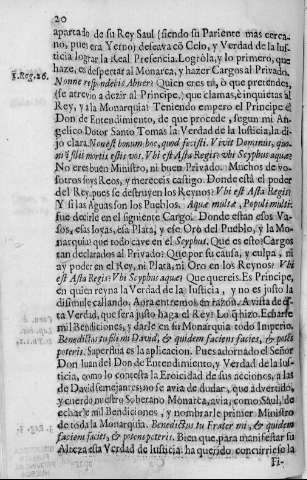 20
apartado de su Rey Saul (siendo su Pariente mas cerca-
no, pues era Yerno) deseava cõ Celo, y Verdad de la Jus-
ticia lograr la Real Presencia. Logròla, y lo primero, que
1. Reg. 26.
haze, es despertar al Monarca, y hazer Cargos al Privado.
Nonne respondebis Abner? Quien eres tu, ò que pretendes,
(se atreviò a dezir al Principe) que clamas, è inquietas al
Rey, y a la Monarquia? Teniendo empero el Principe el
Don de Entendimiento, de que procede, segun mi An-
gelico Dotor Santo Tomàs la Verdad de la Justicia, la di-
jo clara. Non est bonum hoc, quod fecisti. Vivit Dominus, quo-
niã filii mortis estis vos. Vbi est Asta Regis? vbi Scyphus aquæ?
No eres buen Ministro, ni buen Privado. Muchos de vo-
sotros soys Reos, y mereceis castigo. Donde està el poder
del Rey, pues se destruyen los Reynos? Vbi est Asta Regis?
Y si las Aguas son los Pueblos. Aquæ multæ, Populi multi:
fue decirle en el siguiente Cargo. Donde estan esos Va-
sos, esas Joyas, esa Plata, y ese Oro del Pueblo, y la Mo-
narquia: que todo cave en el Scyphus. Que es esto? Cargos
tan declarados al Privado? Que por su causa, y culpa, ni
ay poder en el Rey, ni Plata, ni Oro en los Reynos? Vbi
est Asta Regis? Vbi Scyphus aquæ? Que quereis? Es Principe,
en quien reyna la Verdad de la Justicia, y no es justo la
disimule callando. Aora entremos en razon. A vista de es-
ta Verdad, que serà justo haga el Rey? Lo q̃ hizo. Echarle
mil Bendiciones, y darle en su Monarquia todo Imperio.
Benedictus tu fili mi David, & quidem faciens facies, & potẽs
poteris. Superflua es la aplicacion. Pues adornado el Señor
Don Juan del Don de Entendimiento, y Verdad de la Jus-
ticia, como lo contesta la Eroicidad de sus acciones, a las
de David semejantes; no se avia de dudar, que advertido,
y cuerdo nuestro Soberano Monarca, avia, como Saul, de
echarle mil Bendiciones, y nombrarle primer Ministro
de toda la Monarquia. Benedictus tu Frater mi, & quidem
faciens facies, & potens poteris. Bien que, para manifestar su
Alteza esta Verdad de Justicia: ha querido concurriese la
Fi-